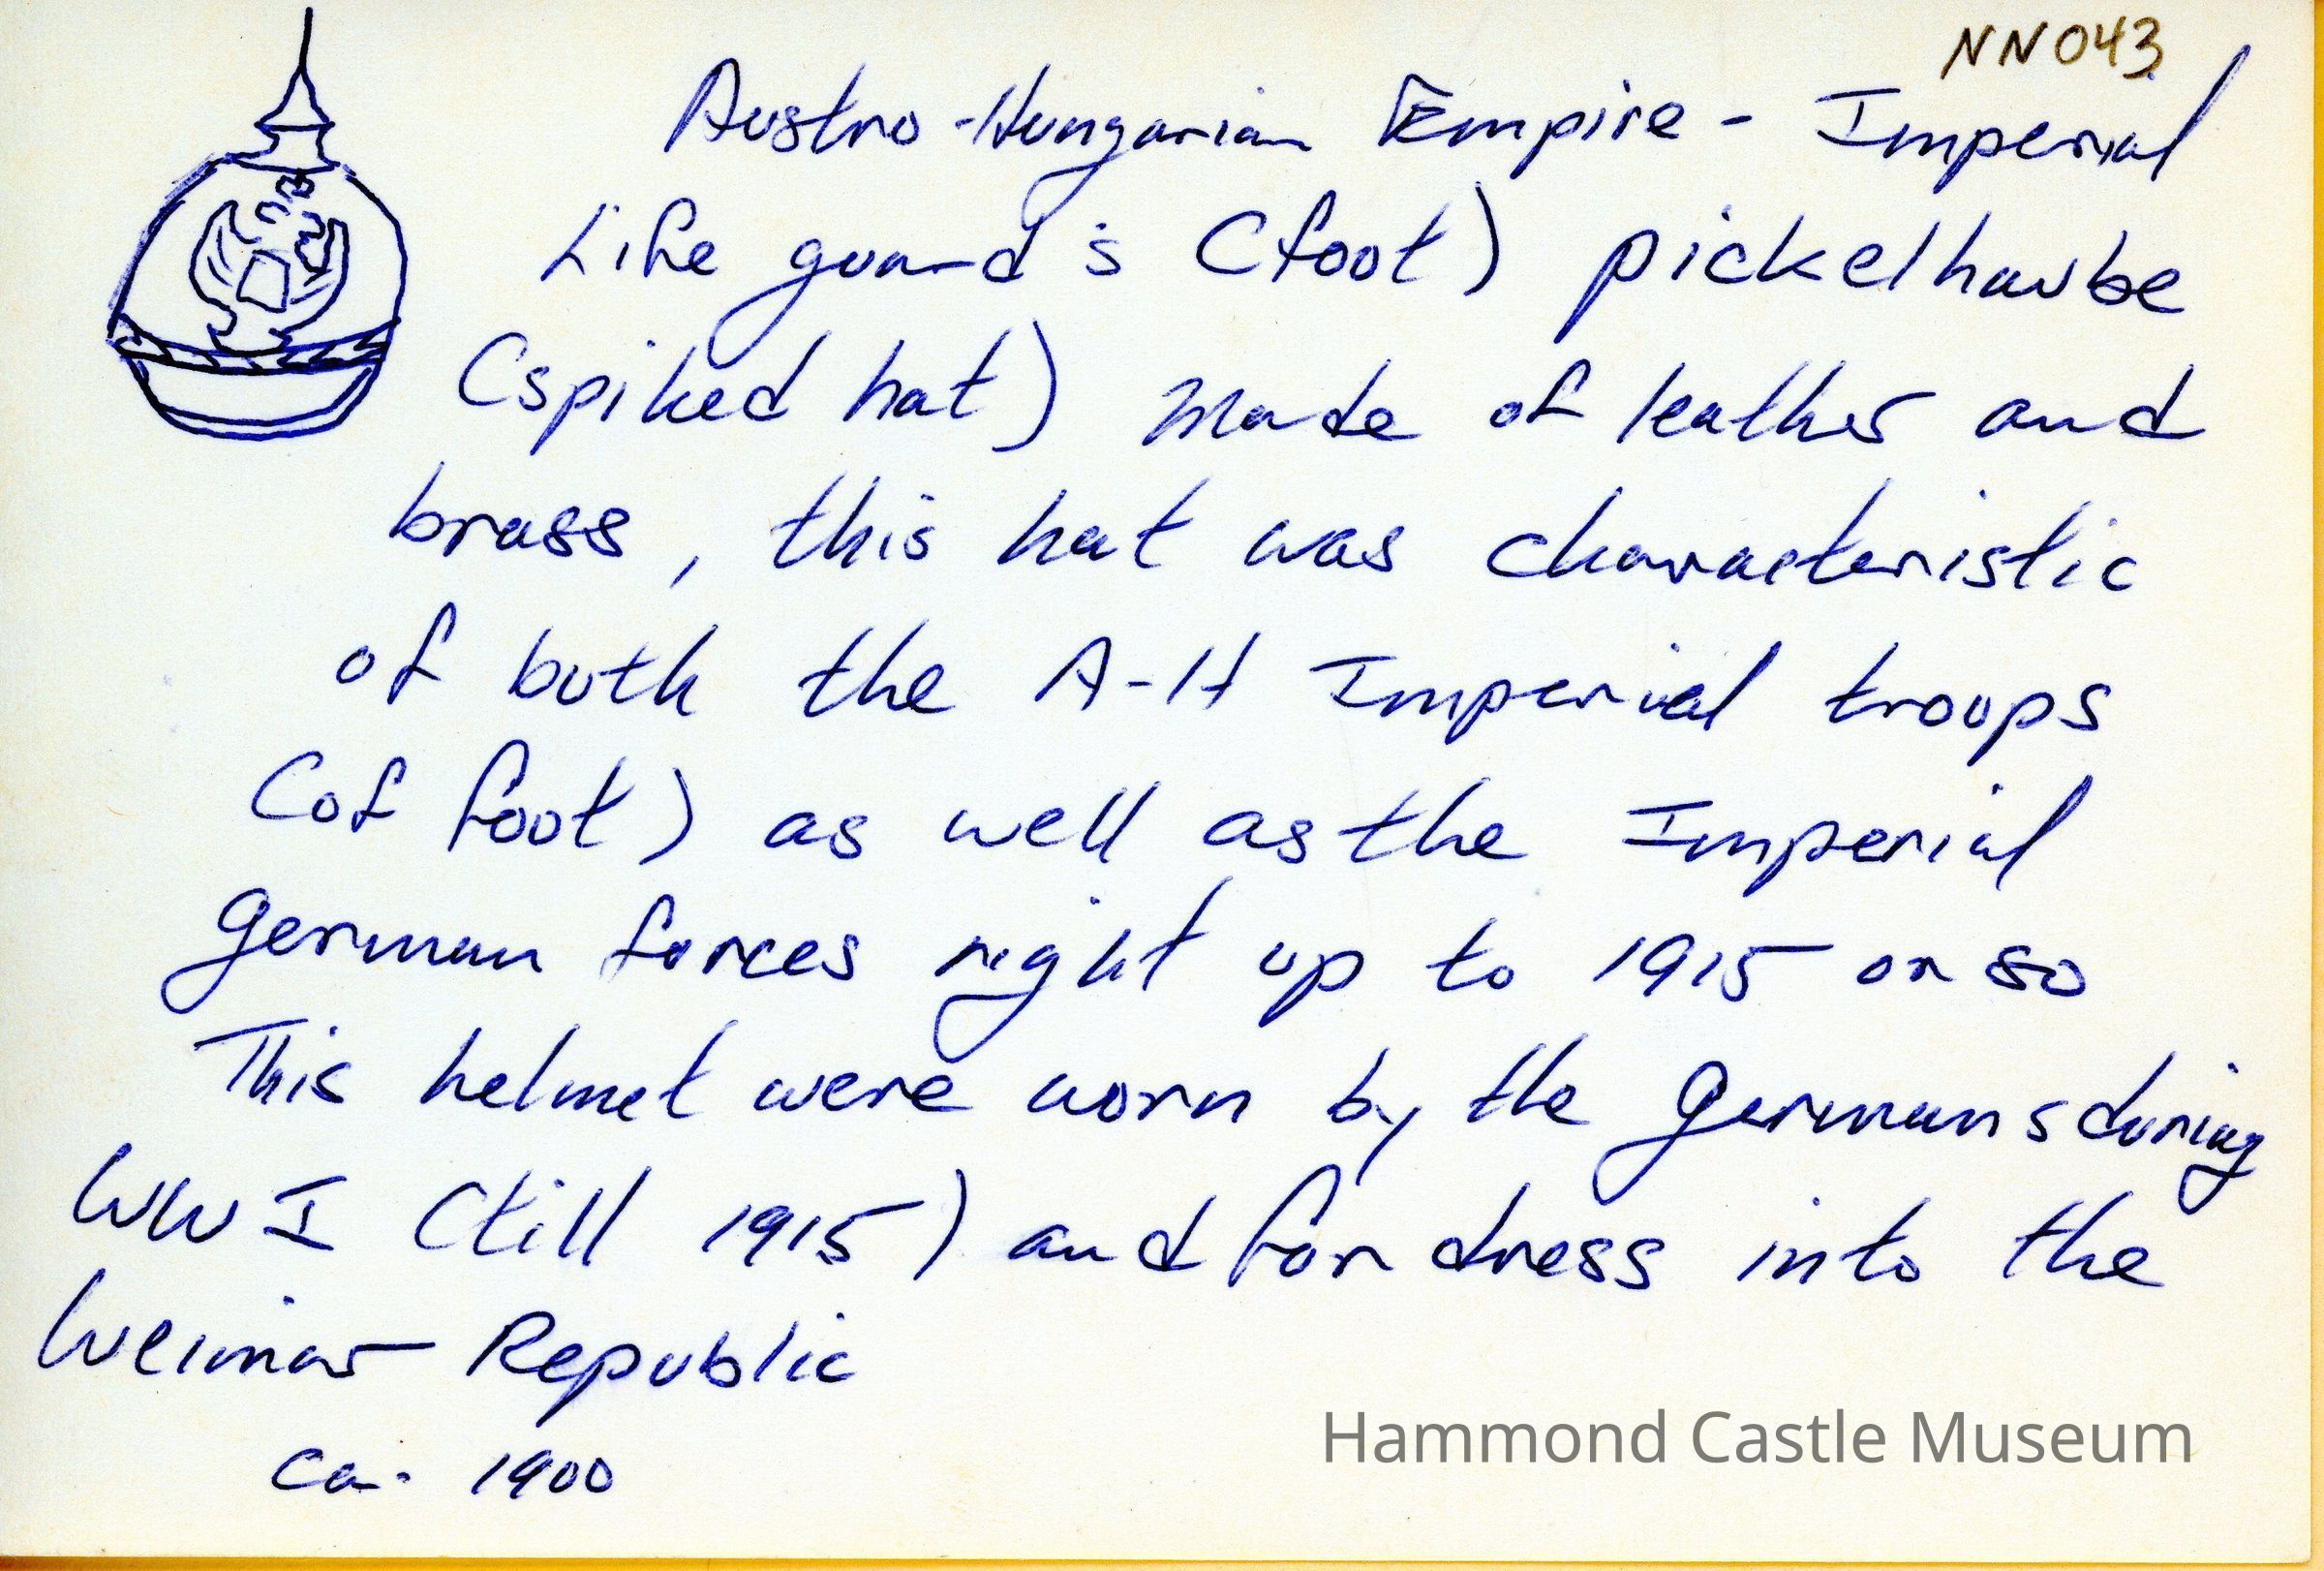 NN043
Austro-Hungarian Empire - Imperial
Life guard's (foot) pickelhaube
(spiked hat) Made of leather and
brass, this hat was characteristic
of both the A-H Imperial troops
(of foot) as well as the Imperial
German forces right up to 1915 or so
This helmet were worn by the Germans during
WW I (till 1915) and for dress into the
Weimar Republic
ca. 1900
Hammond Castle Museum